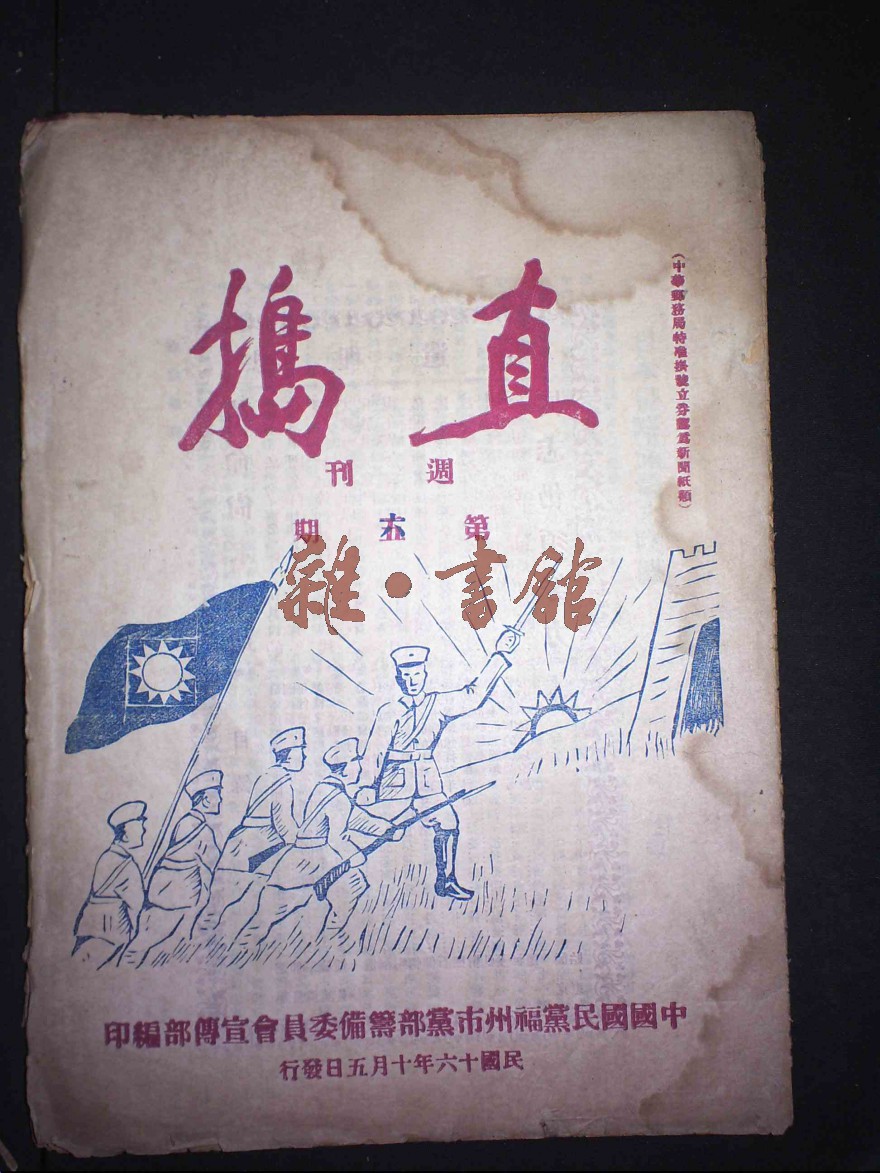 (中華郵務局特准掛號立券認爲新聞紙類)
直搗
週刊
第六期
雜·書館
中國國民黨福州市黨部籌備委員會宣傳部編印
民國十六年十月五日發行